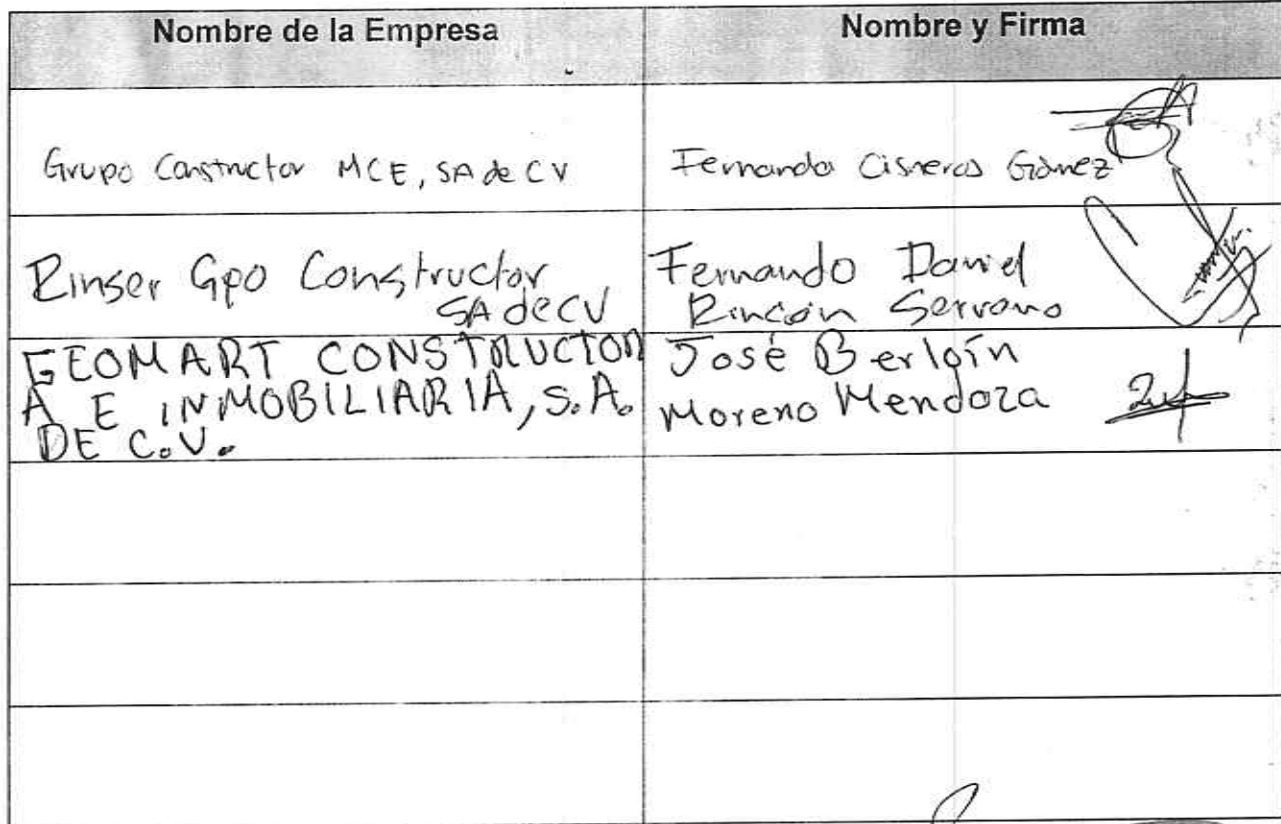 Nombre de la Empresa
Nombre y Firma
Grupo Constructor MCE, SA de CV
Fernando Cisneros Gómez
Rinser Gpo Constructor
SA de CV
Fernando Daniel
Rincón Serrano
GEOMART CONSTRUCTOR
A E INMOBILIARIA, S.A.
DE C.V.
José Berlaín
Moreno Mendoza